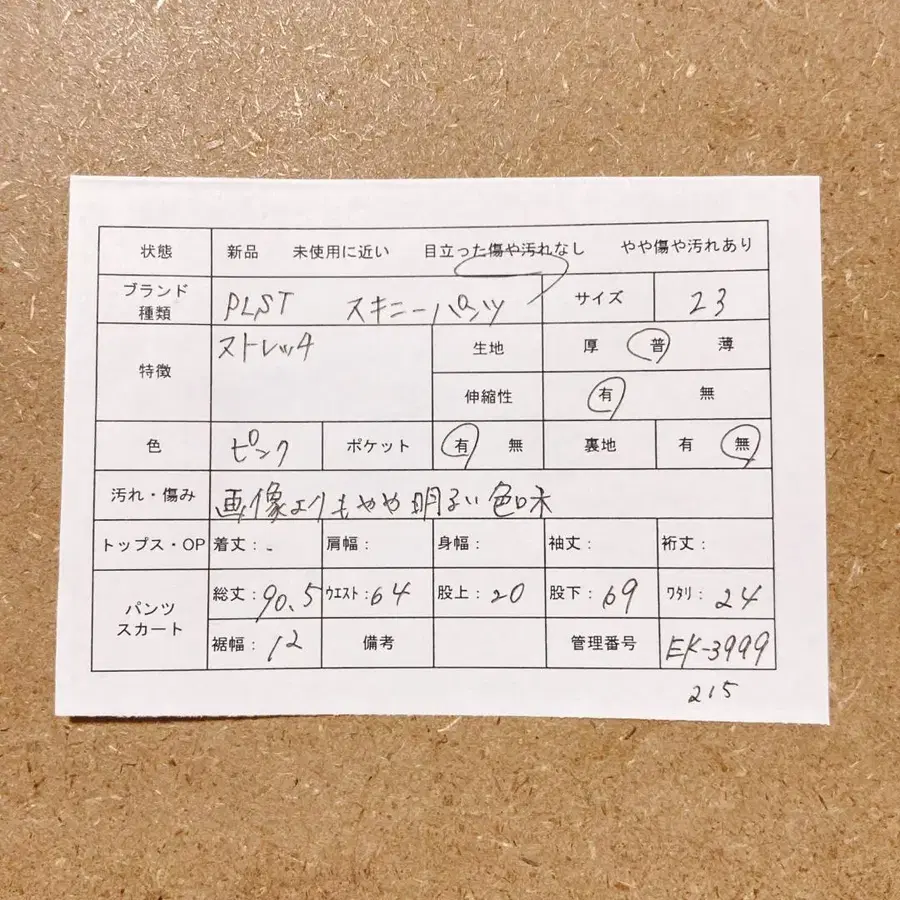 状態 新品 未使用に近い 目立った傷や汚れなし やや傷や汚れあり
ブランド 種類 PLST スキニーパンツ サイズ 23
特徴 ストレッチ 生地 厚 普 薄
伸縮性 有 無
色 ピンク ポケット 有 無 裏地 有 無
汚れ・傷み 画像よりもやや明るい色味
トップス・OP 着丈: 肩幅: 身幅: 袖丈: 裄丈:
パンツ スカート 総丈: 90.5 ウエスト: 64 股上: 20 股下: 69 ワタリ: 24
裾幅: 12 備考 管理番号 EK-3999
215